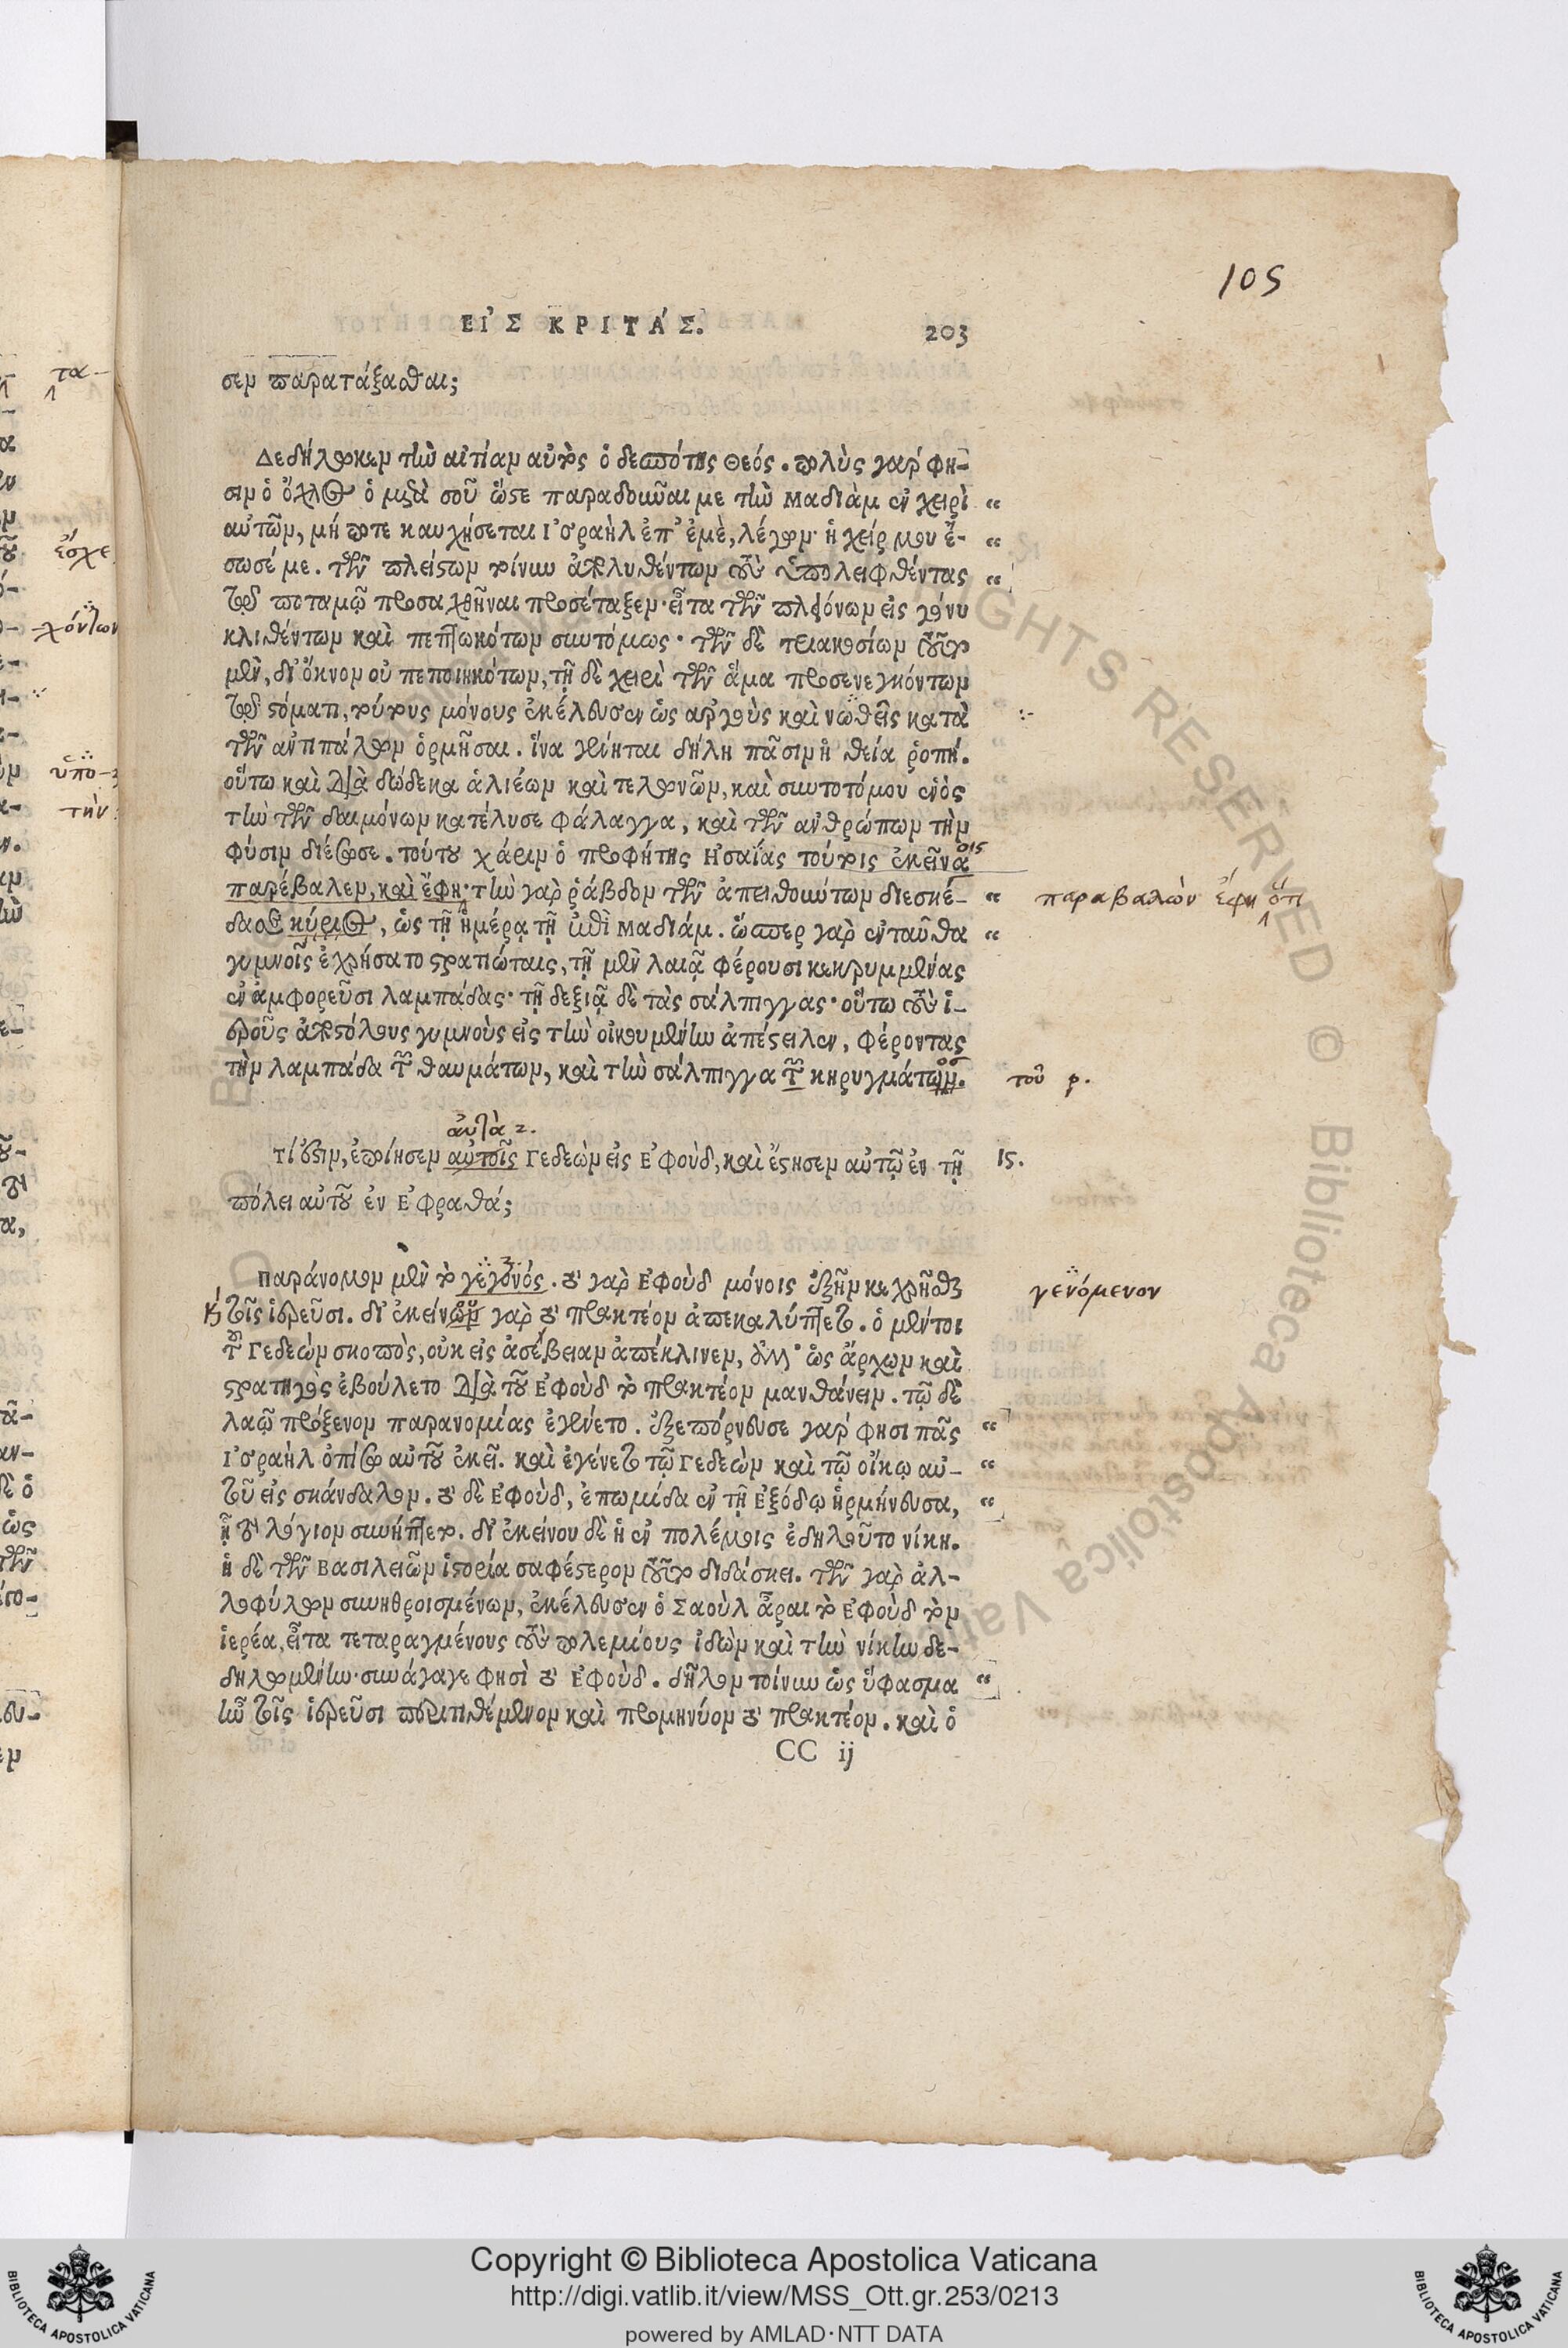 105
ΕἸΣ ΚΡΙΤΆΣ.
203
σεν παρατάξασθαι;
Δεδήλωκεν τὴν αἰτίαν αὐτὸς ὁ δεσπότης Θεός. πολὺς γάρ φη-
σιν ὁ ὄχλος ὁ μετὰ σοῦ ὥστε παραδοῦναί με τὴν Μαδιὰμ ἐν χειρὶ “
αὐτῶν, μή ποτε καυχήσεται Ἰσραὴλ ἐπ' ἐμὲ, λέγων· ἡ χείρ μου ἔ- “
σωσέ με. τῶν πλείστων τοίνυν ἀπολυθέντων τοὺς ὑπολειφθέντας “
τῷ ποταμῷ προσαχθῆναι προσέταξεν· εἶτα τῶν πλειόνων εἰς γόνυ
κλιθέντων καὶ πεπτωκότων συντόμως· τῶν δὲ τριακοσίων τοῦτο
μὲν, δι' ὄκνον οὐ πεποιηκότων, τῇ δὲ χειρὶ τῶν ἅμα προσενεγκόντων
τῷ στόματι, τούτους μόνους ἐκέλευσεν ὡς ἀργοὺς καὶ νωθεῖς κατὰ
τῶν ἀντιπάλων ὁρμῆσαι. ἵνα γένηται δήλη πᾶσιν ἡ θεία ῥοπή.
οὕτω καὶ διὰ δώδεκα ἁλιέων καὶ τελωνῶν, καὶ σκυτοτόμου ἑνὸς
τὴν τῶν δαιμόνων κατέλυσε φάλαγγα, καὶ τῶν ἀνθρώπων τὴν
φύσιν διέσωσε. τούτου χάριν ὁ προφήτης Ἡσαΐας τούτοις ἐκεῖνα
οις
παρέβαλεν, καὶ ἔφη· τὴν γὰρ ῥάβδον τῶν ἀπειθούντων διεσκέ- “ παραβαλὼν ἔφη ὅτι
δασε κύριος, ὡς τῇ ἡμέρᾳ τῇ ἐπὶ Μαδιάμ. ὥσπερ γὰρ ἐνταῦθα “
γυμνοῖς ἐχρήσατο στρατιώταις, τῇ μὲν λαιᾷ φέρουσι κεκρυμμένας
ἐν ἀμφορεῦσι λαμπάδας· τῇ δεξιᾷ δὲ τὰς σάλπιγγας· οὕτω τοὺς ἱ-
εροὺς ἀποστόλους γυμνοὺς εἰς τὴν οἰκουμένην ἀπέστειλεν, φέροντας
τὴν λαμπάδα τῶν θαυμάτων, καὶ τὴν σάλπιγγα τῶν κηρυγμάτων.
τοῦ
αὐτὰ 2.
τί ἐστιν, ἐποίησεν αὐτοῖς Γεδεὼν εἰς Ἐφοὺδ, καὶ ἔστησεν αὐτῷ ἐν τῇ 15.
πόλει αὐτοῦ ἐν Ἐφραθά;
Παράνομον μὲν τὸ γεγονός. τὸ γὰρ Ἐφοὺδ μόνοις ἐξῆν κεχρῆσθαι γενόμενον
τοῖς ἱερεῦσι. δι' ἐκείνων γὰρ τὸ πρακτέον ἀπεκαλύπτετο. ὁ μέντοι
τοῦ Γεδεὼν σκοπὸς, οὐκ εἰς ἀσέβειαν ἀπέκλινεν, ἀλλ' ὡς ἄρχων καὶ
στρατηγὸς ἐβούλετο διὰ τοῦ Ἐφοὺδ τὸ πρακτέον μανθάνειν. τῷ δὲ
λαῷ πρόξενον παρανομίας ἐγένετο. ἐξεπόρνευσε γάρ φησι πᾶς “
Ἰσραὴλ ὀπίσω αὐτοῦ ἐκεῖ. καὶ ἐγένετο τῷ Γεδεὼν καὶ τῷ οἴκῳ αὐ- “
τοῦ εἰς σκάνδαλον. τὸ δὲ Ἐφοὺδ, ἐπωμίδα ἐν τῇ Ἐξόδῳ ἡρμήνευσα, “
ᾗ τὸ λόγιον συνήπτετο. δι' ἐκείνου δὲ ἡ ἐν πολέμοις ἐδηλοῦτο νίκη.
ἡ δὲ τῶν Βασιλειῶν ἱστορία σαφέστερον τοῦτο διδάσκει. τῶν γὰρ ἀλ-
λοφύλων συνηθροισμένων, ἐκέλευσεν ὁ Σαοὺλ ἆραι τὸ Ἐφοὺδ τὸν
ἱερέα, εἶτα τεταραγμένους τοὺς πολεμίους ἰδὼν καὶ τὴν νίκην δε-
δηλωμένην· συνάγαγε φησὶ τὸ Ἐφούδ. δῆλον τοίνυν ὡς ὕφασμα “
ἦν τοῖς ἱερεῦσι περιτιθέμενον καὶ προμηνύον τὸ πρακτέον. καὶ ὁ
CC ij
Copyright © Biblioteca Apostolica Vaticana
http://digi.vatlib.it/view/MSS_Ott.gr.253/0213
powered by AMLAD·NTT DATA